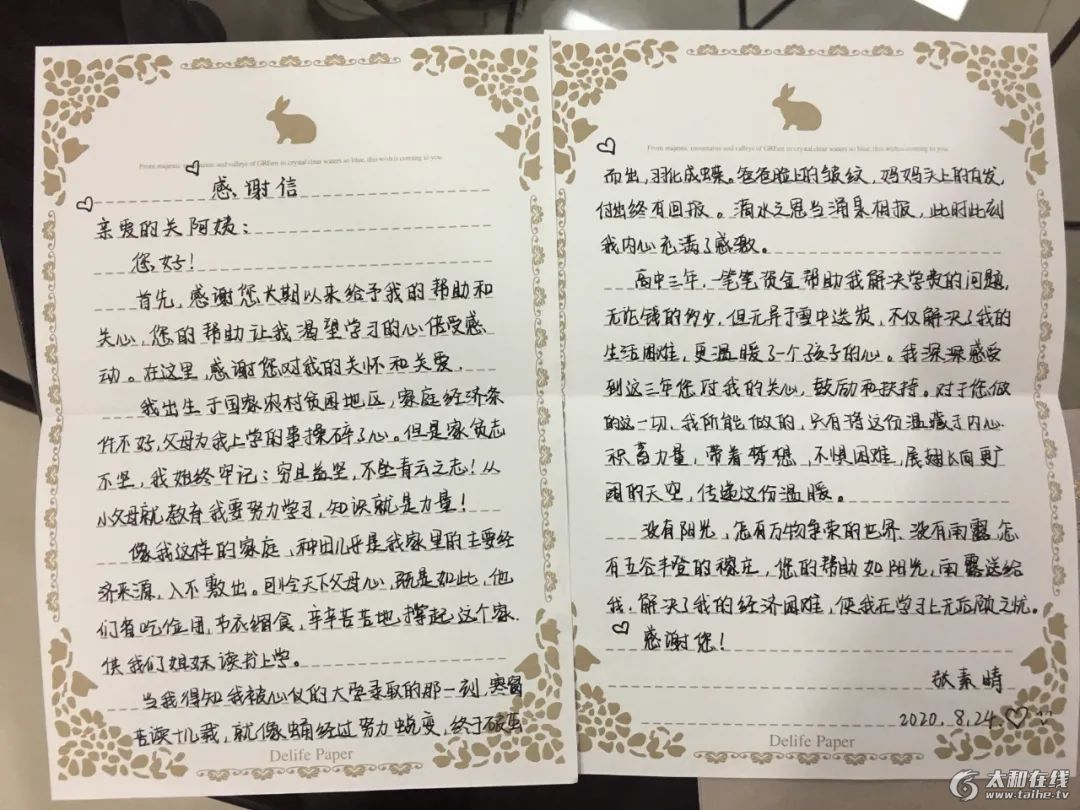 From majestic mountains and valleys of GREen to crystal clear waters so blue, this wish is coming to you.
感谢信
亲爱的关阿姨：
您好！
首先，感谢您长期以来给予我的帮助和
关心，您的帮助让我渴望学习的心倍受感
动。在这里，感谢您对我的关怀和关爱。
我出生于国家农村贫困地区，家庭经济条
件不好，父母为我上学的事操碎了心。但是家贫志
不坠，我始终牢记：穷且益坚，不坠青云之志！从
小父母就教育我要努力学习，知识就是力量！
像我这样的家庭，种田几乎是我家里的主要经
济来源，入不敷出。可怜天下父母心，既是如此，他
们省吃俭用，节衣缩食，辛辛苦苦地撑起这个家，
供我们姐妹读书上学。
当我得知我被心仪的大学录取的那一刻，寒窗
苦读十几载，就像蛹经过努力蜕变，终于破茧
Delife Paper
From majestic mountains and valleys of GREen to crystal clear waters so blue, this wish is coming to you.
而出，羽化成蝶。爸爸脸上的皱纹，妈妈头上的白发，
付出终有回报。滴水之恩当涌泉相报，此时此刻
我内心充满了感激。
高中三年，一笔笔资金帮助我解决学费的问题，
无论钱的多少，但无异于雪中送炭，不仅解决了我的
生活困难，更温暖了一个孩子的心。我深深感受
到这三年您对我的关心，鼓励和扶持。对于您做
的这一切，我所能做的，只有将这份温藏于内心
积蓄力量，带着梦想，不惧困难，展翅飞向更广
阔的天空，传递这份温暖。
没有阳光，怎有万物争荣的世界，没有雨露，怎
有五谷丰登的稼庄，您的帮助如阳光，雨露送给
我，解决了我的经济困难，使我在学习上无后顾之忧。
感谢您！
张素晴
2020.8.24.
Delife Paper
太和在线
www.taihe.tv